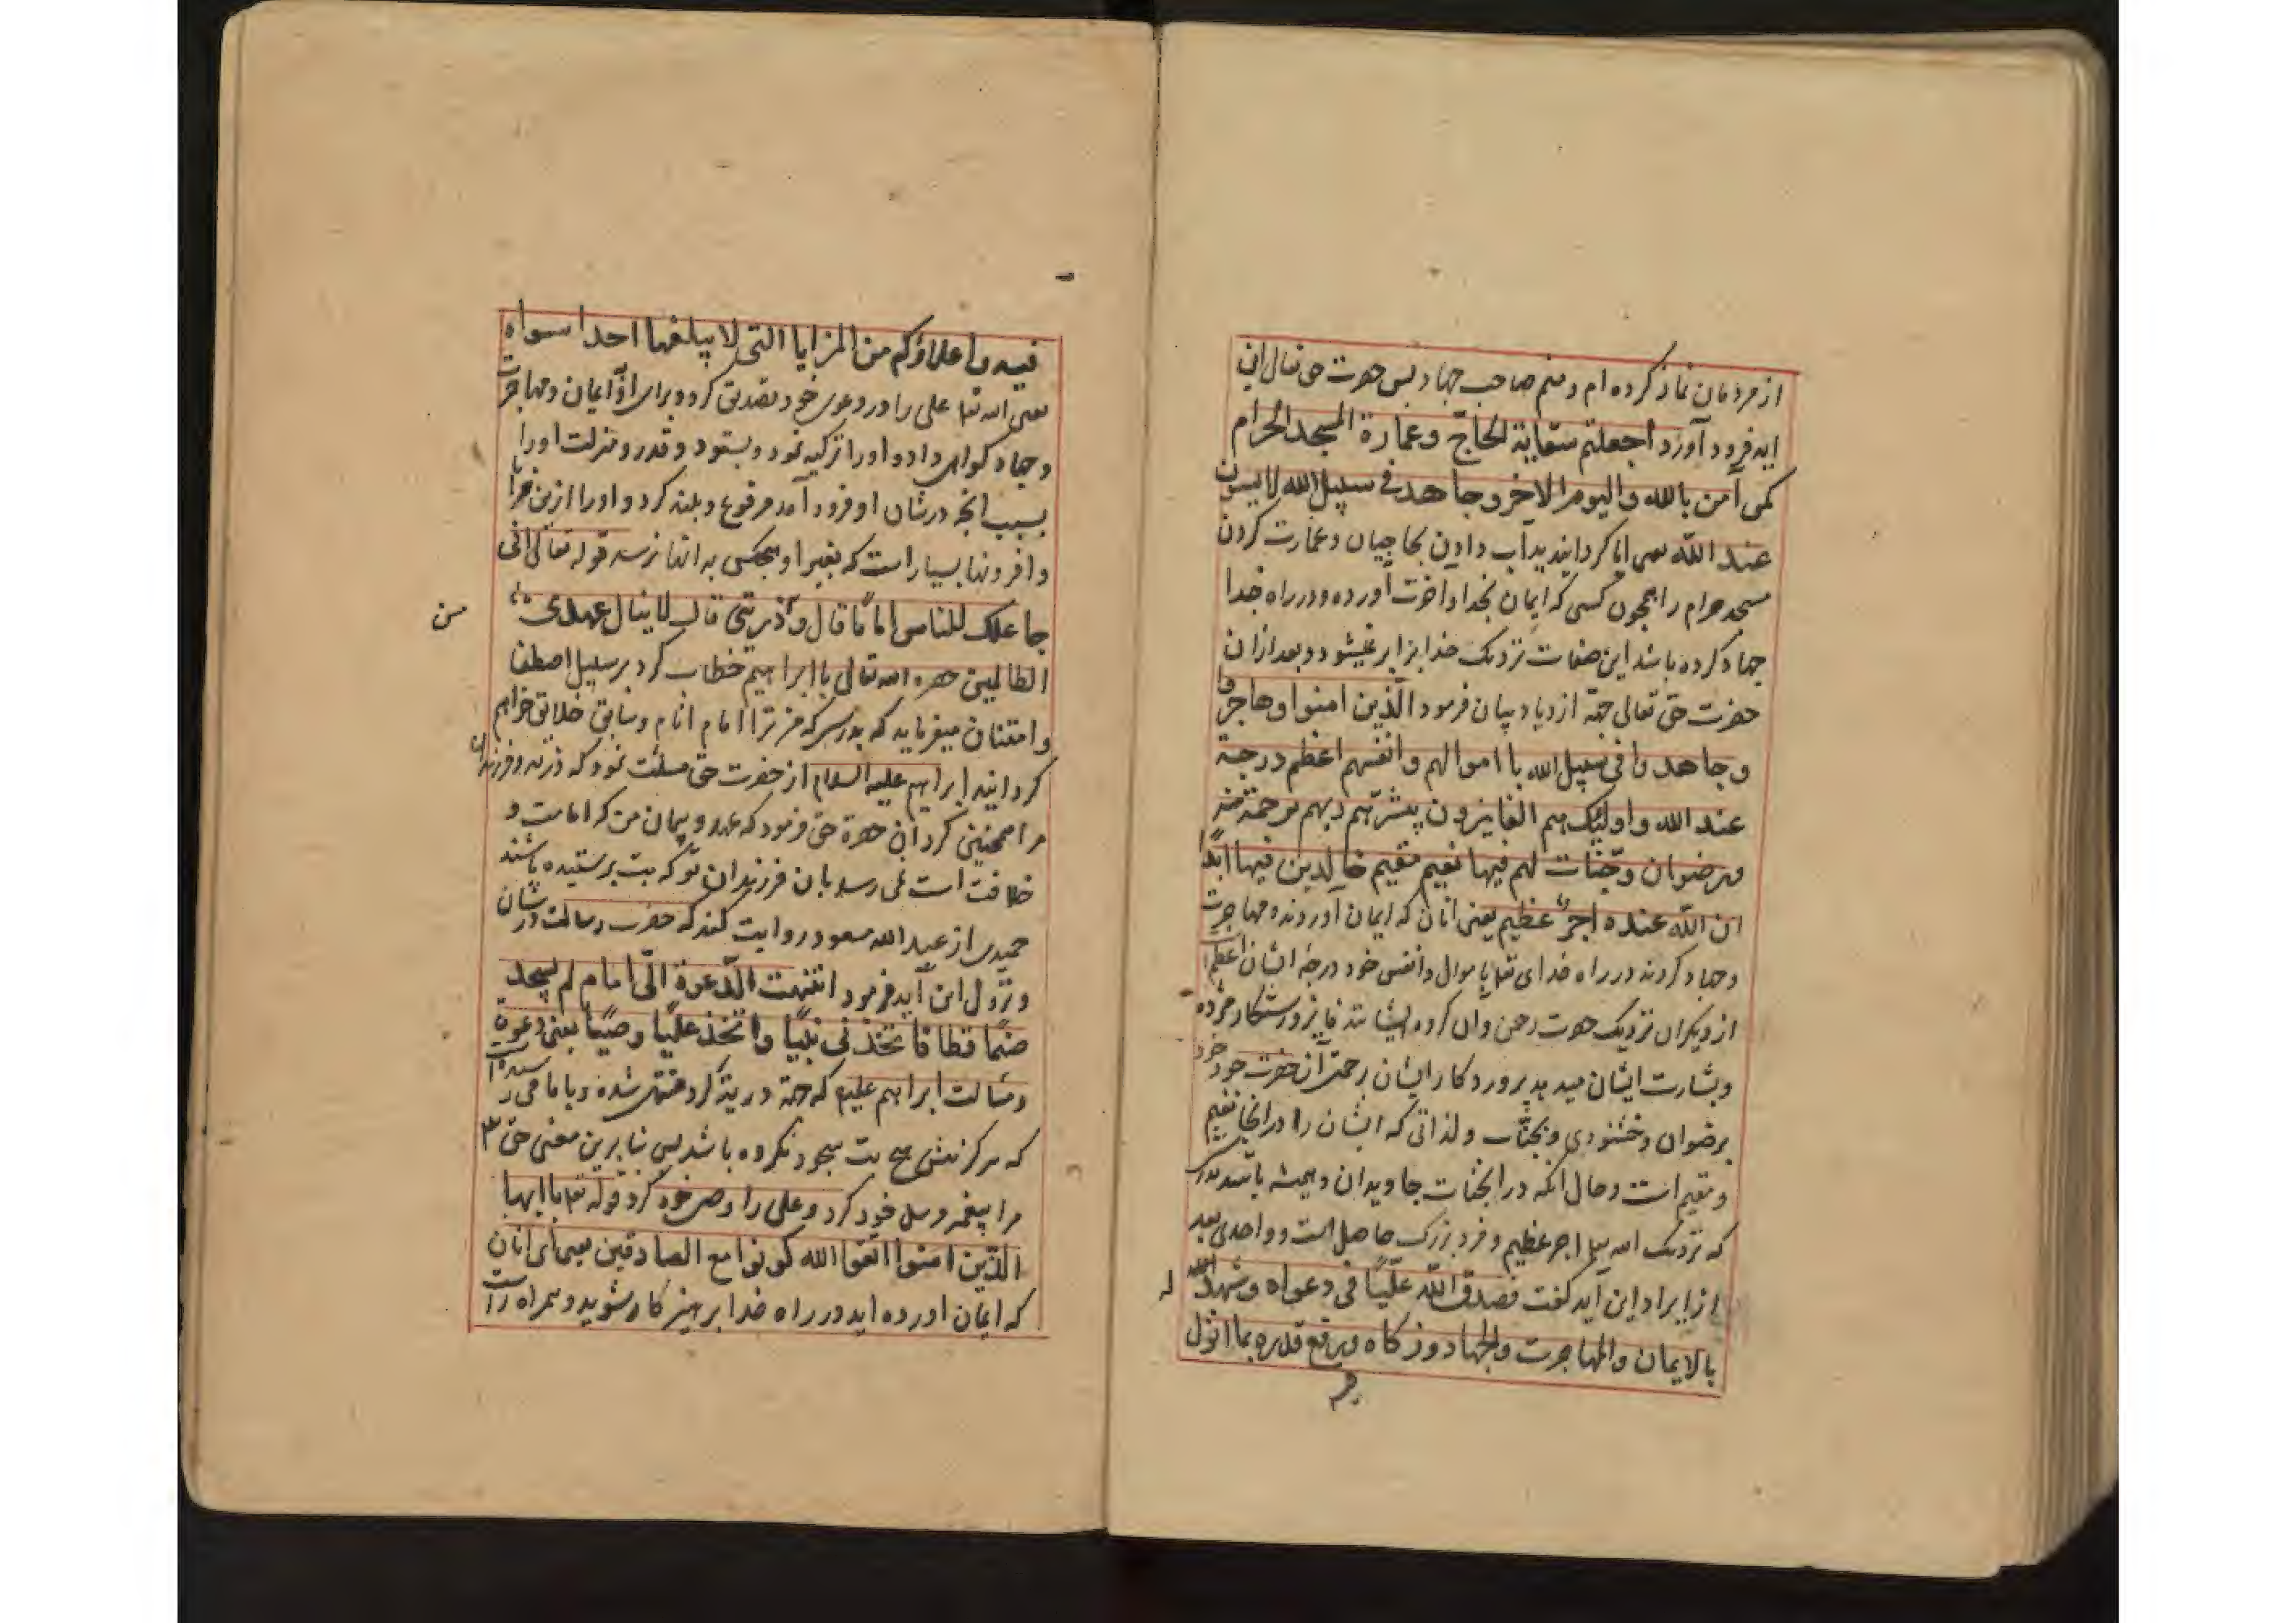 از مردمان نماز کرده ام و منم صاحب جهاد بس حضرت حق تعالی این
ایه فرود آورد اجعلتم سقایة الحاجّ وعمارة المسجد الحرام
کمن آمن بالله والیوم الاخر وجاهد فی سبیل الله لا یستون
عند الله یعنی ایا کردانیدید آب دادن بحاجیان و عمارت کردن
مسجد حرام را همچون کسی که ایمان بخدا و اخرت آورده و در راه خدا
جهاد کرده باشد این صفات نزدیک خدا برابر نمیشود و بعد ازان
حضرت حق تعالی جهة ازدیاد بیان فرمود الّذین امنوا وهاجروا
وجاهدوا فی سبیل الله باموالهم وانفسهم اعظم درجة
عند الله واولئک هم الفایزون یبشّرهم ربهم برحمة منه
ورضوان وجنّات لهم فیها نعیم مقیم خالدین فیها ابدًا
ان الله عنده اجرٌ عظیم یعنی انان که ایمان آوردند و مهاجرت
و جهاد کردند در راه خدای تعا باموال و انفس خود درجه ایشان اعظم
از دیکران نزدیک حضرت رحمن وآن کروه ایشانند فایز و رستکار مژده
و بشارت ایشان میدهد پرورد کار ایشان رحمتی از حضرت خود
برضوان و خشنودی و بجنّات و لذاتی که ایشان را درانجا نعیم
و مقیم است و حال انکه در انجنات جاویدان و همیشه باشند بدرستی
که نزدیک الله تعا اجر عظیم و مزد بزرک حاصل است و واحدی بعد
از ایراد این آیه کفت فصدق الله علیًّا فی دعواه وشهد له
بالایمان والمهاجرت والجهاد وزکاه ورفع قدره بما انزل
فیه
فیه واعلاؤکم من المزایا التی لا یبلغها احدا سواه
یعنی الله تعا علی را در دعوی خود تصدیق کرد و برای او ایمان و مهاجرت
و جهاد کواهی داد و او را تزکیه نمود و بستود و قدر و منزلت او را
بسبب انچه در شان او فرود آمد مرفوع و بلند کرد و او را ازین مزایا
و افزونها بسیار است که بغیر او هیچکس به انها نرسد قوله تعالی انی
جاعلک للناس امامًا قال ومن ذریتی قال لا ینال عهدی
الظالمین حضرة الله تعالی با ابراهیم خطاب کرد بر سبیل اصطفا
و امتنان میفرماید که بدرستی که من ترا امام انام و سابق خلایق خواهم
کردانید ابراهیم علیه السلام از حضرت حق مسئلت نمود که ذریه و فرزندان
مرا همچنین کردان حضرة حق فرمود که عهد و پیمان من که امامت و
خلافت است نمی رسد بان فرزندان تو که بت پرستیده باشند
حمیدی از عبد الله مسعود روایت کند که حضرت رسالت در شان
و نزول این آیه فرمود انتهت الدّعوة الیّ امام لم یسجد
صنمًا قط فاتخذنی نبیًّا واتخذ علیًّا وصیًّا یعنی دعوت
رسالت ابراهیم علیه که جهة ذریة کرد منتهی شده و بامامی رسید
که هرکز پیش هیچ بت سجود نکرده باشد بس بنابرین معنی حق تعا
مرا پیغمبر مرسل خود کرد و علی را وصی خود کرد قوله تعا یا ایها
الّذین امنوا اتقوا الله کونوا مع الصادقین یعنی ای انان
که ایمان اورده اید در راه خدا پرهیز کار شوید و همراه راست